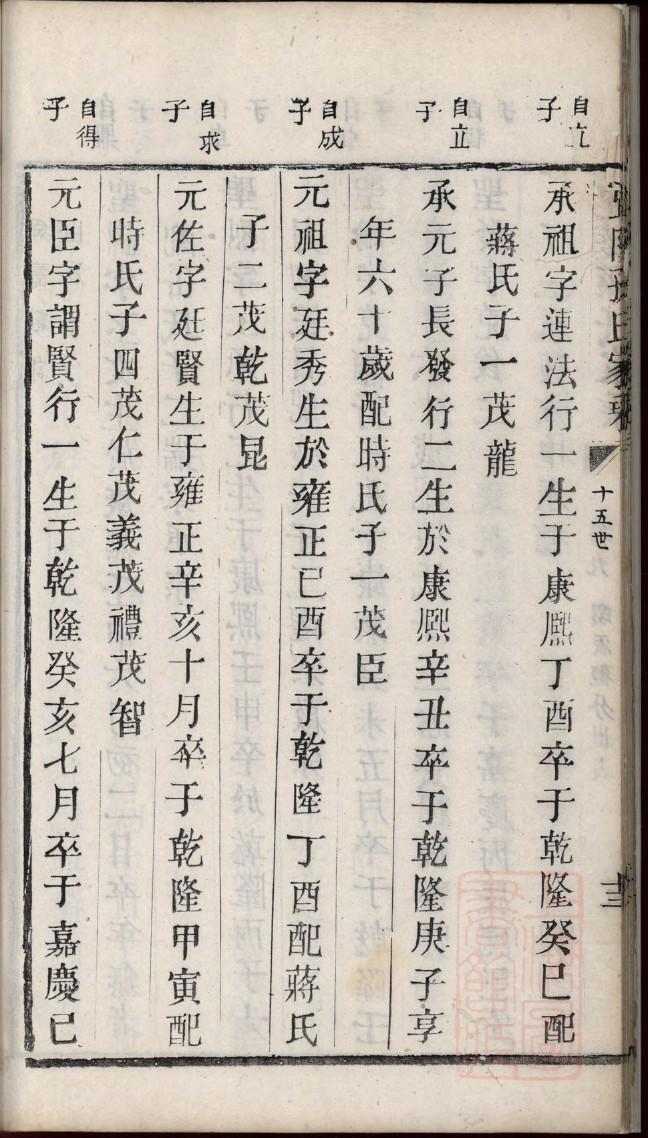 孫氏家乘
十五世
十三
自立子
承祖字連法行一生于康熈丁酉卒于乾隆癸巳配
蔣氏子一茂龍
自立子
承元子長發行二生於康熈辛丑卒于乾隆庚子享
年六十歲配時氏子一茂臣
自成子
元祖字廷秀生於雍正己酉卒于乾隆丁酉配蔣氏
子二茂乾茂昆
自求子
元佐字廷賢生于雍正辛亥十月卒于乾隆甲寅配
時氏子四茂仁茂義茂禮茂智
自得子
元臣字謂賢行一生于乾隆癸亥七月卒于嘉慶己